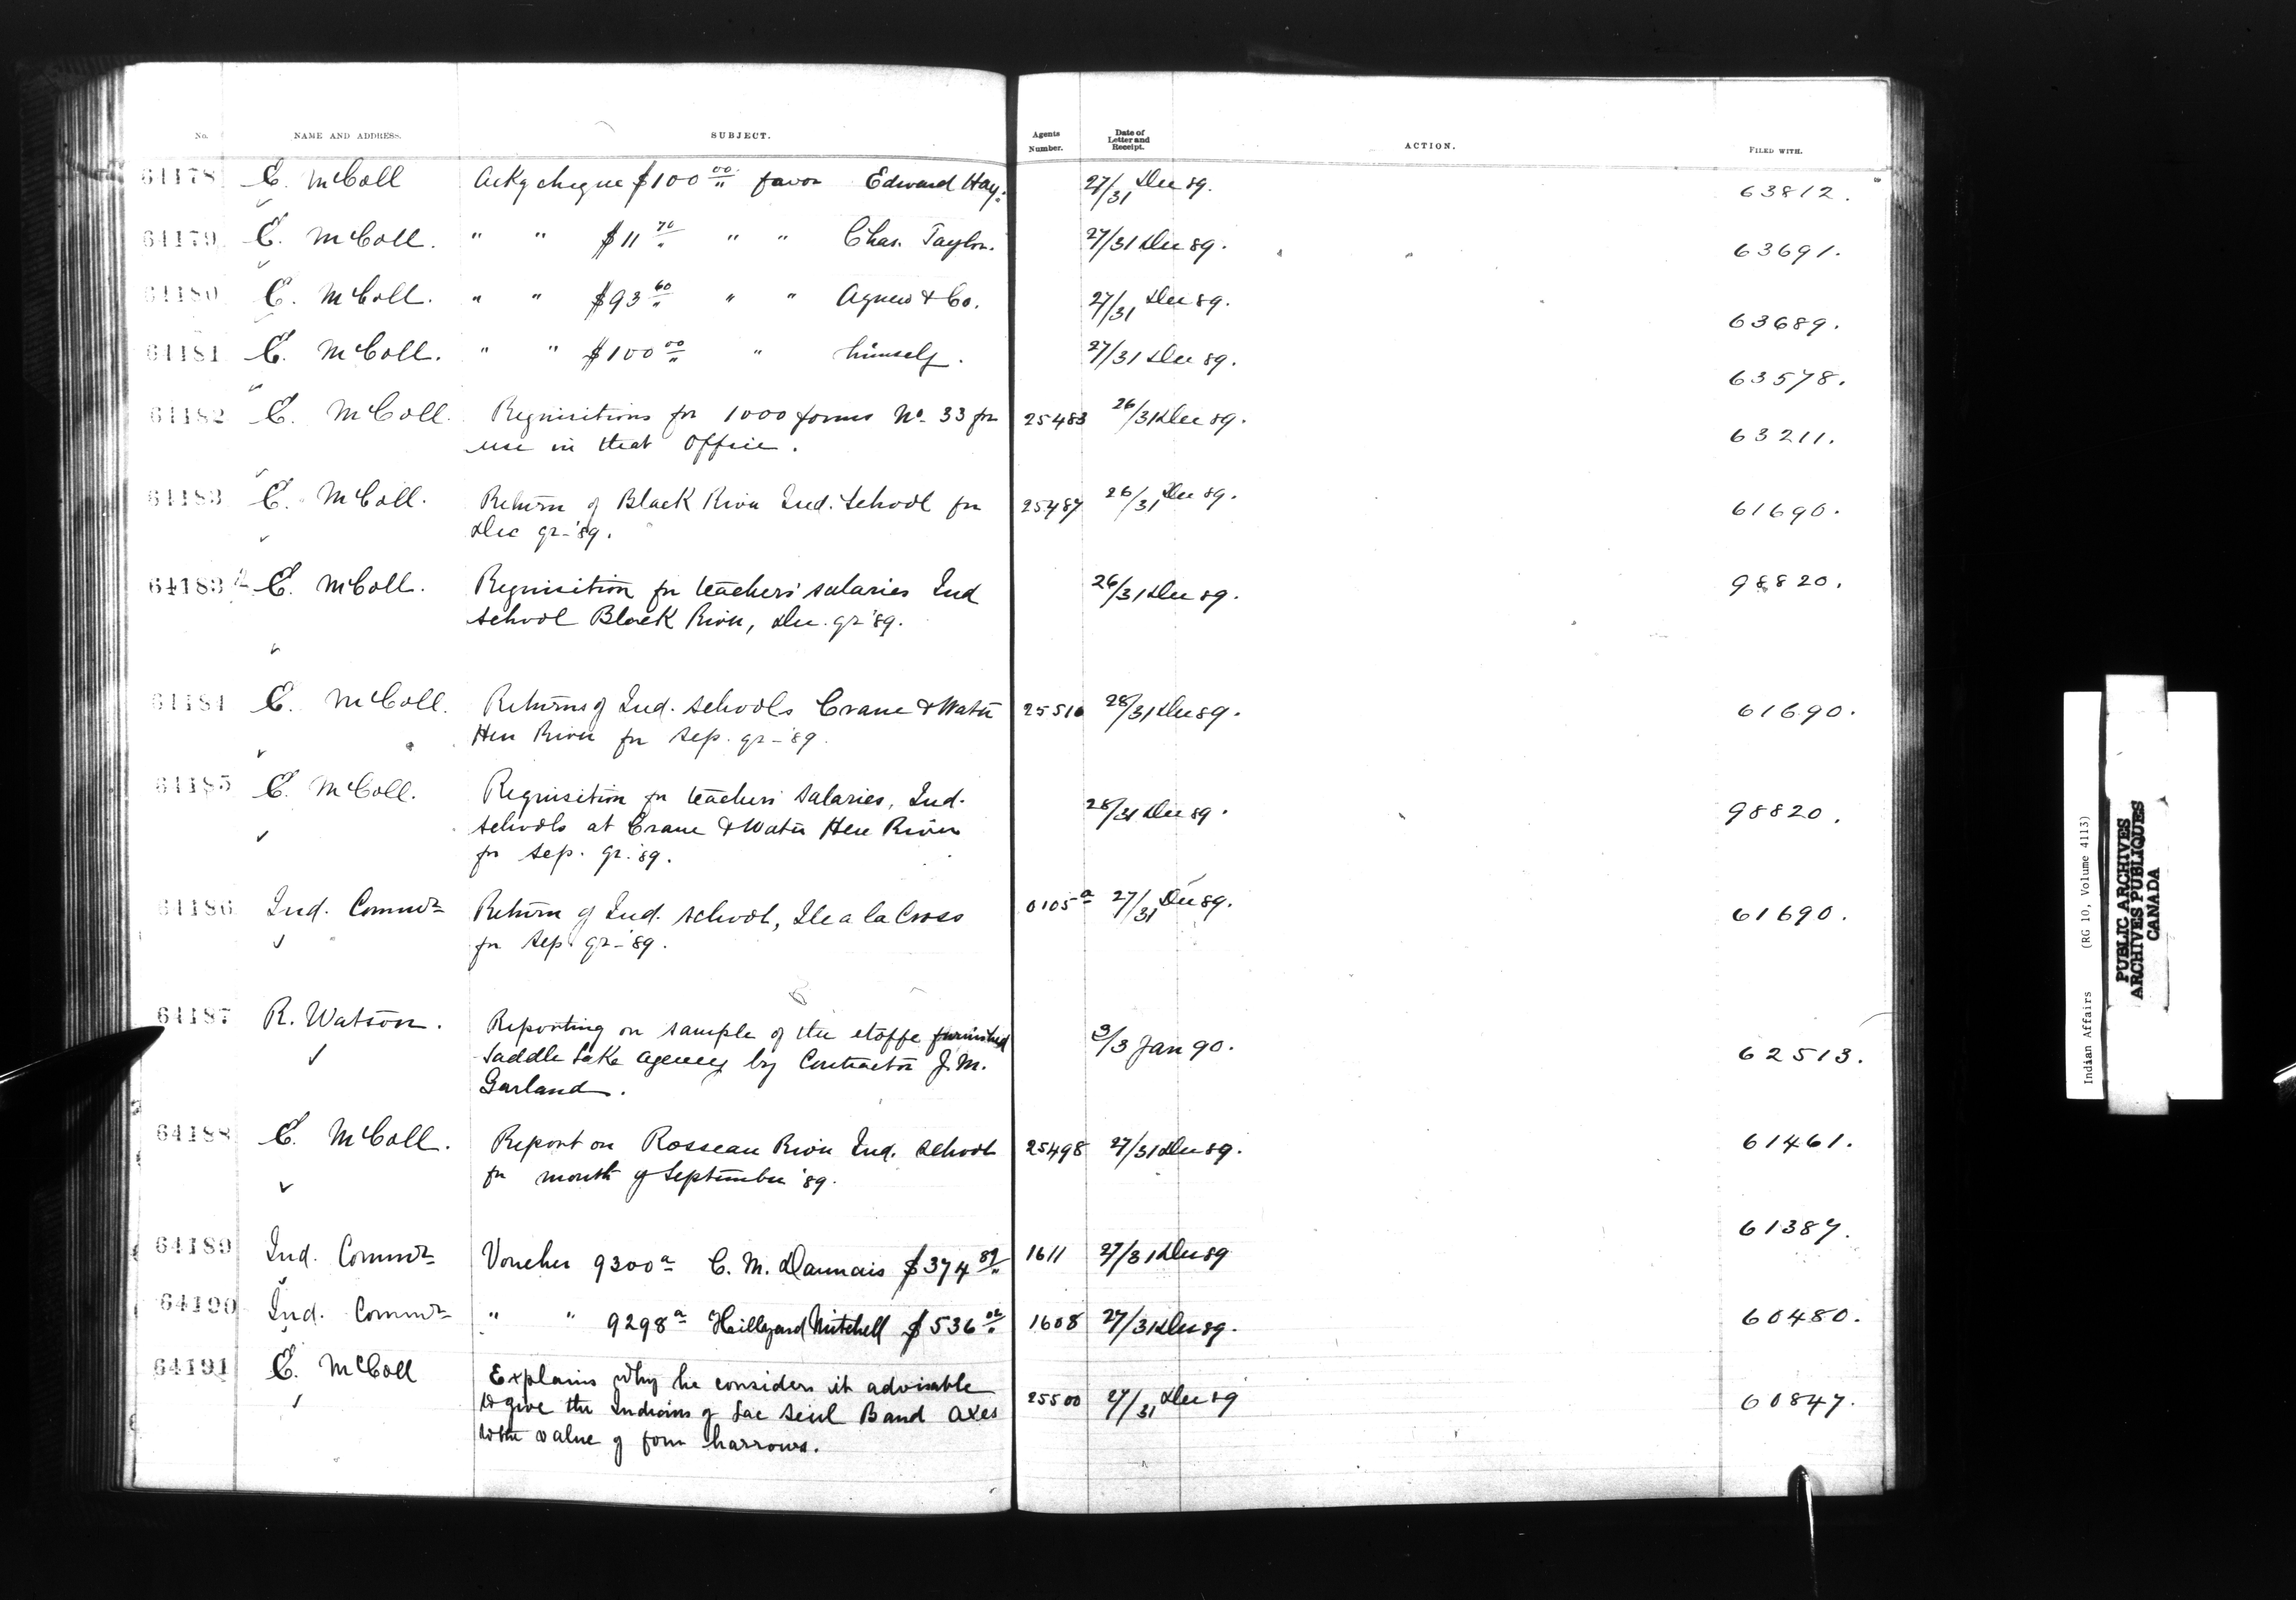 No. NAME AND ADDRESS. SUBJECT. Agents Number. Date of Letter and Receipt. ACTION. FILED WITH.
64178 E. McColl Ackg cheque $100 00/" favor Edward Hay. 27/31 Dec 89. 63812.
64179 E. McColl. " " $11 70/" " " Chas. Taylor. 27/31 Dec 89. 63691.
64180 E. McColl. " " $93 60/" " " Agnew & Co. 27/31 Dec 89. 63689.
64181 E. McColl. " " $100 00/" " himself. 27/31 Dec 89. 63578.
64182 E. McColl. Requisitions for 1000 forms No. 33 for 25483 26/31 Dec 89. 63211.
use in that Office.
64183 E. McColl. Return of Black River Ind. School for 25487 26/31 Dec 89. 61690.
Dec qr-'89.
64183 E. McColl. Requisition for teachers' salaries Ind 26/31 Dec 89. 98820.
School Black River, Dec. qr '89.
64184 E. McColl. Returns of Ind. schools Crane & Water 25510 28/31 Dec 89. 61690.
Hen River for Sep. qr-'89.
64185 E. McColl. Requisition for teachers' salaries, Ind. 28/31 Dec 89. 98820.
schools at Crane & Water Hen River
for Sep. qr. '89.
64186 Ind. Commr Return of Ind. school, Ile a la Cross 0105a 27/31 Dec 89. 61690.
for Sep. qr-'89.
64187 R. Watson. Reporting on sample of the etoffe furnished 3/3 Jan 90. 62513.
Saddle Lake Agency by Contractor J. M.
Garland.
64188 E. McColl. Report on Rosseau River Ind. school 25498 27/31 Dec 89. 61461.
for month of September '89.
64189 Ind. Commr Voucher 9300a C. M. Daunais $374 89/" 1611 27/31 Dec 89 61387.
64190 Ind. Commr " " 9298a Hillyard Mitchell $536 02/" 1608 27/31 Dec 89. 60480.
64191 E. McColl Explains why he considers it advisable 25500 27/31 Dec 89 60847.
to give the Indians of Lac Seul Band axes
to the value of four harrows.
Indian Affairs (RG 10, Volume 4113)
PUBLIC ARCHIVES
ARCHIVES PUBLIQUES
CANADA